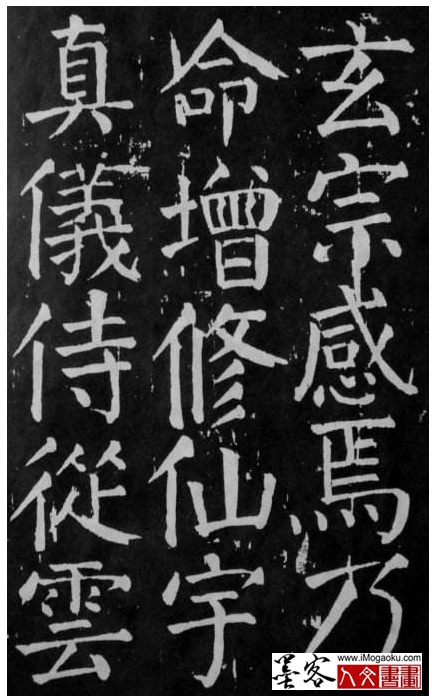 玄宗感焉乃
命增修仙宇
真儀侍從雲
墨客
www.iMogaoku.com
人文書畫